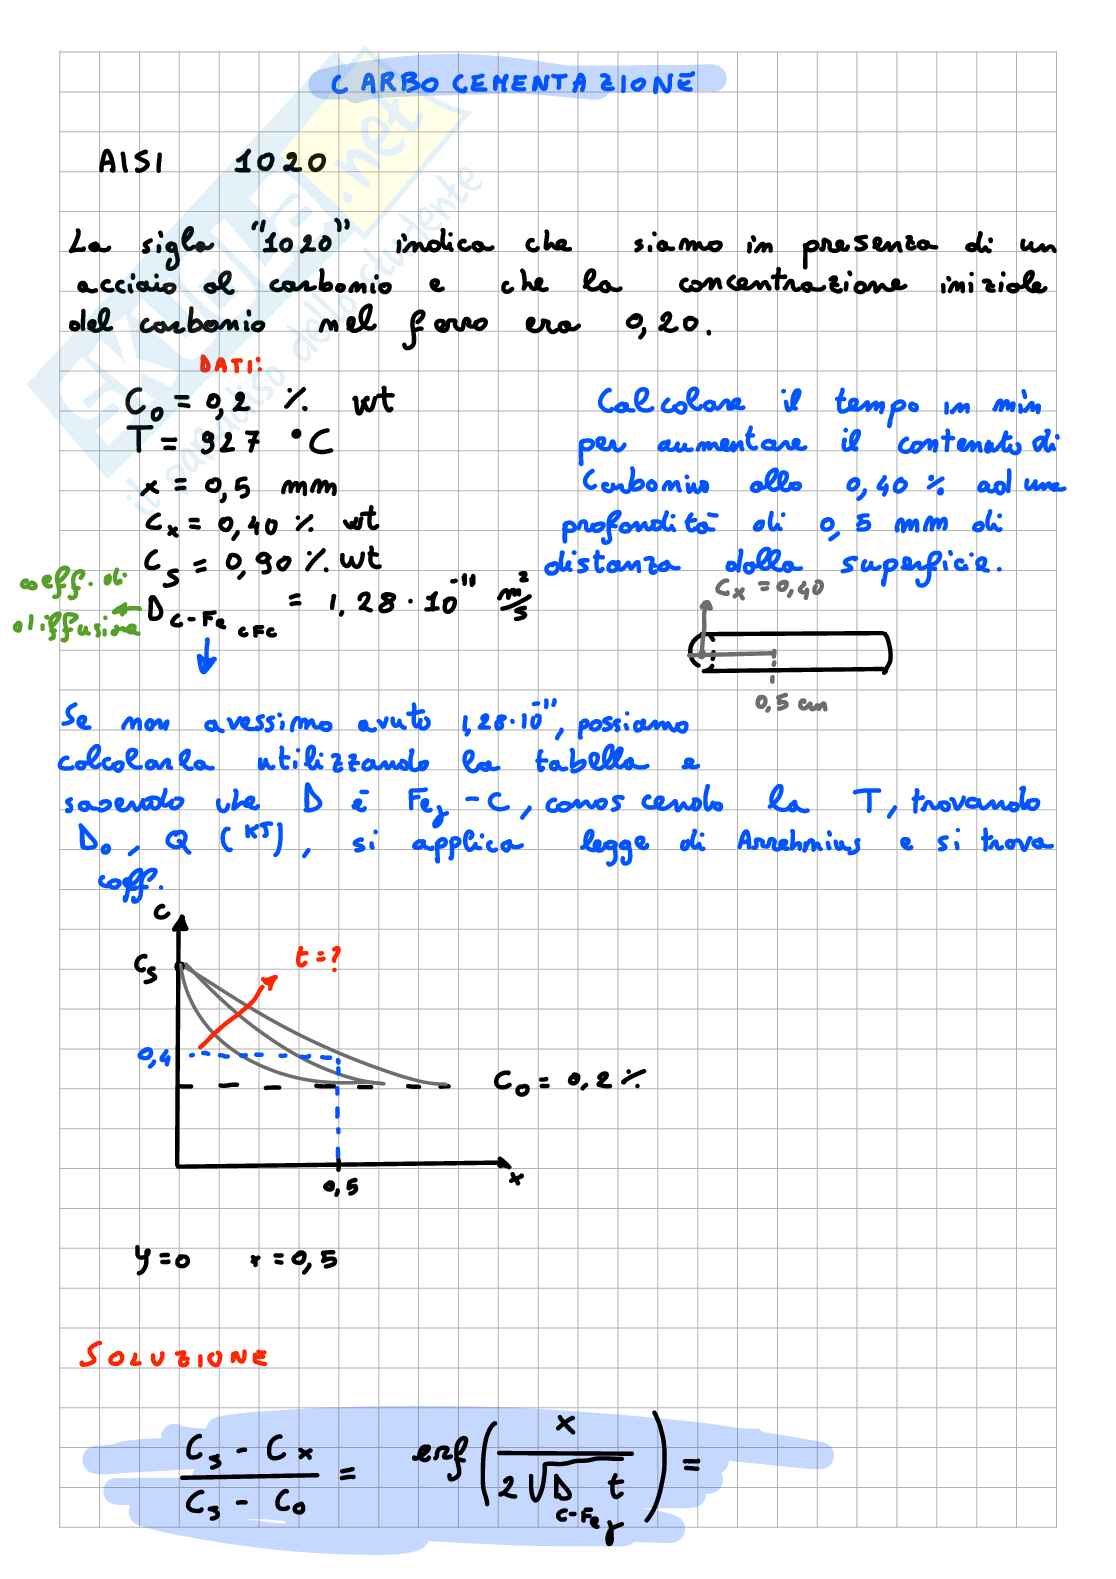 CARBOCEMENTAZIONE
AISI 1020
La sigla "1020" indica che siamo in presenza di un
acciaio al carbonio e che la concentrazione iniziale
del carbonio nel ferro era 0,20.
DATI:
C₀ = 0,2 % wt
T = 927 °C
x = 0,5 mm
Cx = 0,40 % wt
Cs = 0,90 % wt
D C-Fe CFC = 1,28 · 10⁻¹¹ m²/s
coeff. di
diffusione
Calcolare il tempo in min
per aumentare il contenuto di
Carbonio allo 0,40 % ad una
profondità di 0,5 mm di
distanza dalla superficie.
Cx = 0,40
0,5 cm
Se non avessimo avuto 1,28·10⁻¹¹, possiamo
calcolarla utilizzando la tabella e
sapendo che D è Feγ - C, conoscendo la T, trovando
D₀, Q (KJ), si applica legge di Arrehnius e si trova
coeff.
C
Cs
t = ?
0,4
C₀ = 0,2 %
0,5
x
y = 0 x = 0,5
SOLUZIONE
(Cs - Cx) / (Cs - C₀) = erf (x / (2 √(D C-Feγ t))) =
SKUOLA.net
il paradiso dello studente